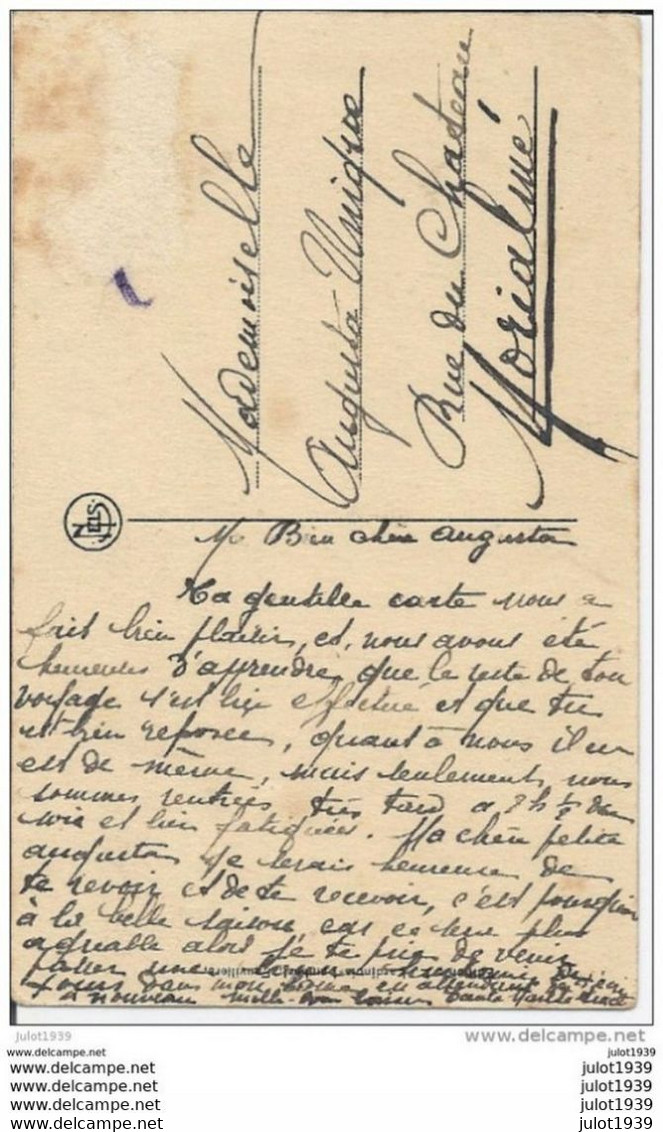 Mademoiselle
Augusta
Rue du Chateau
Morialmé
NELS
Bien chère Augusta
Ta gentille carte nous a
fait bien plaisir, et, nous avons été
heureuses d'apprendre que le reste de ton
voyage s'est bien effectué et que tu
est bien reposée, quant à nous il en
est de même, mais seulement, nous
sommes rentrées très tard a 8h ½ du
soir et bien fatiguées. Ma chère petite
Augusta je serais heureuse de
te revoir et de te recevoir, c'est pourquoi
à la belle saison, car ce sera plus
agréable alors je te prie de venir
passer une
jours dans mon en attendant
à nouveau mille bons baisers
julot1939
www.delcampe.net
julot1939
www.delcampe.net
julot1939
www.delcampe.net
julot1939
www.delcampe.net
julot1939
www.delcampe.net
julot1939
www.delcampe.net